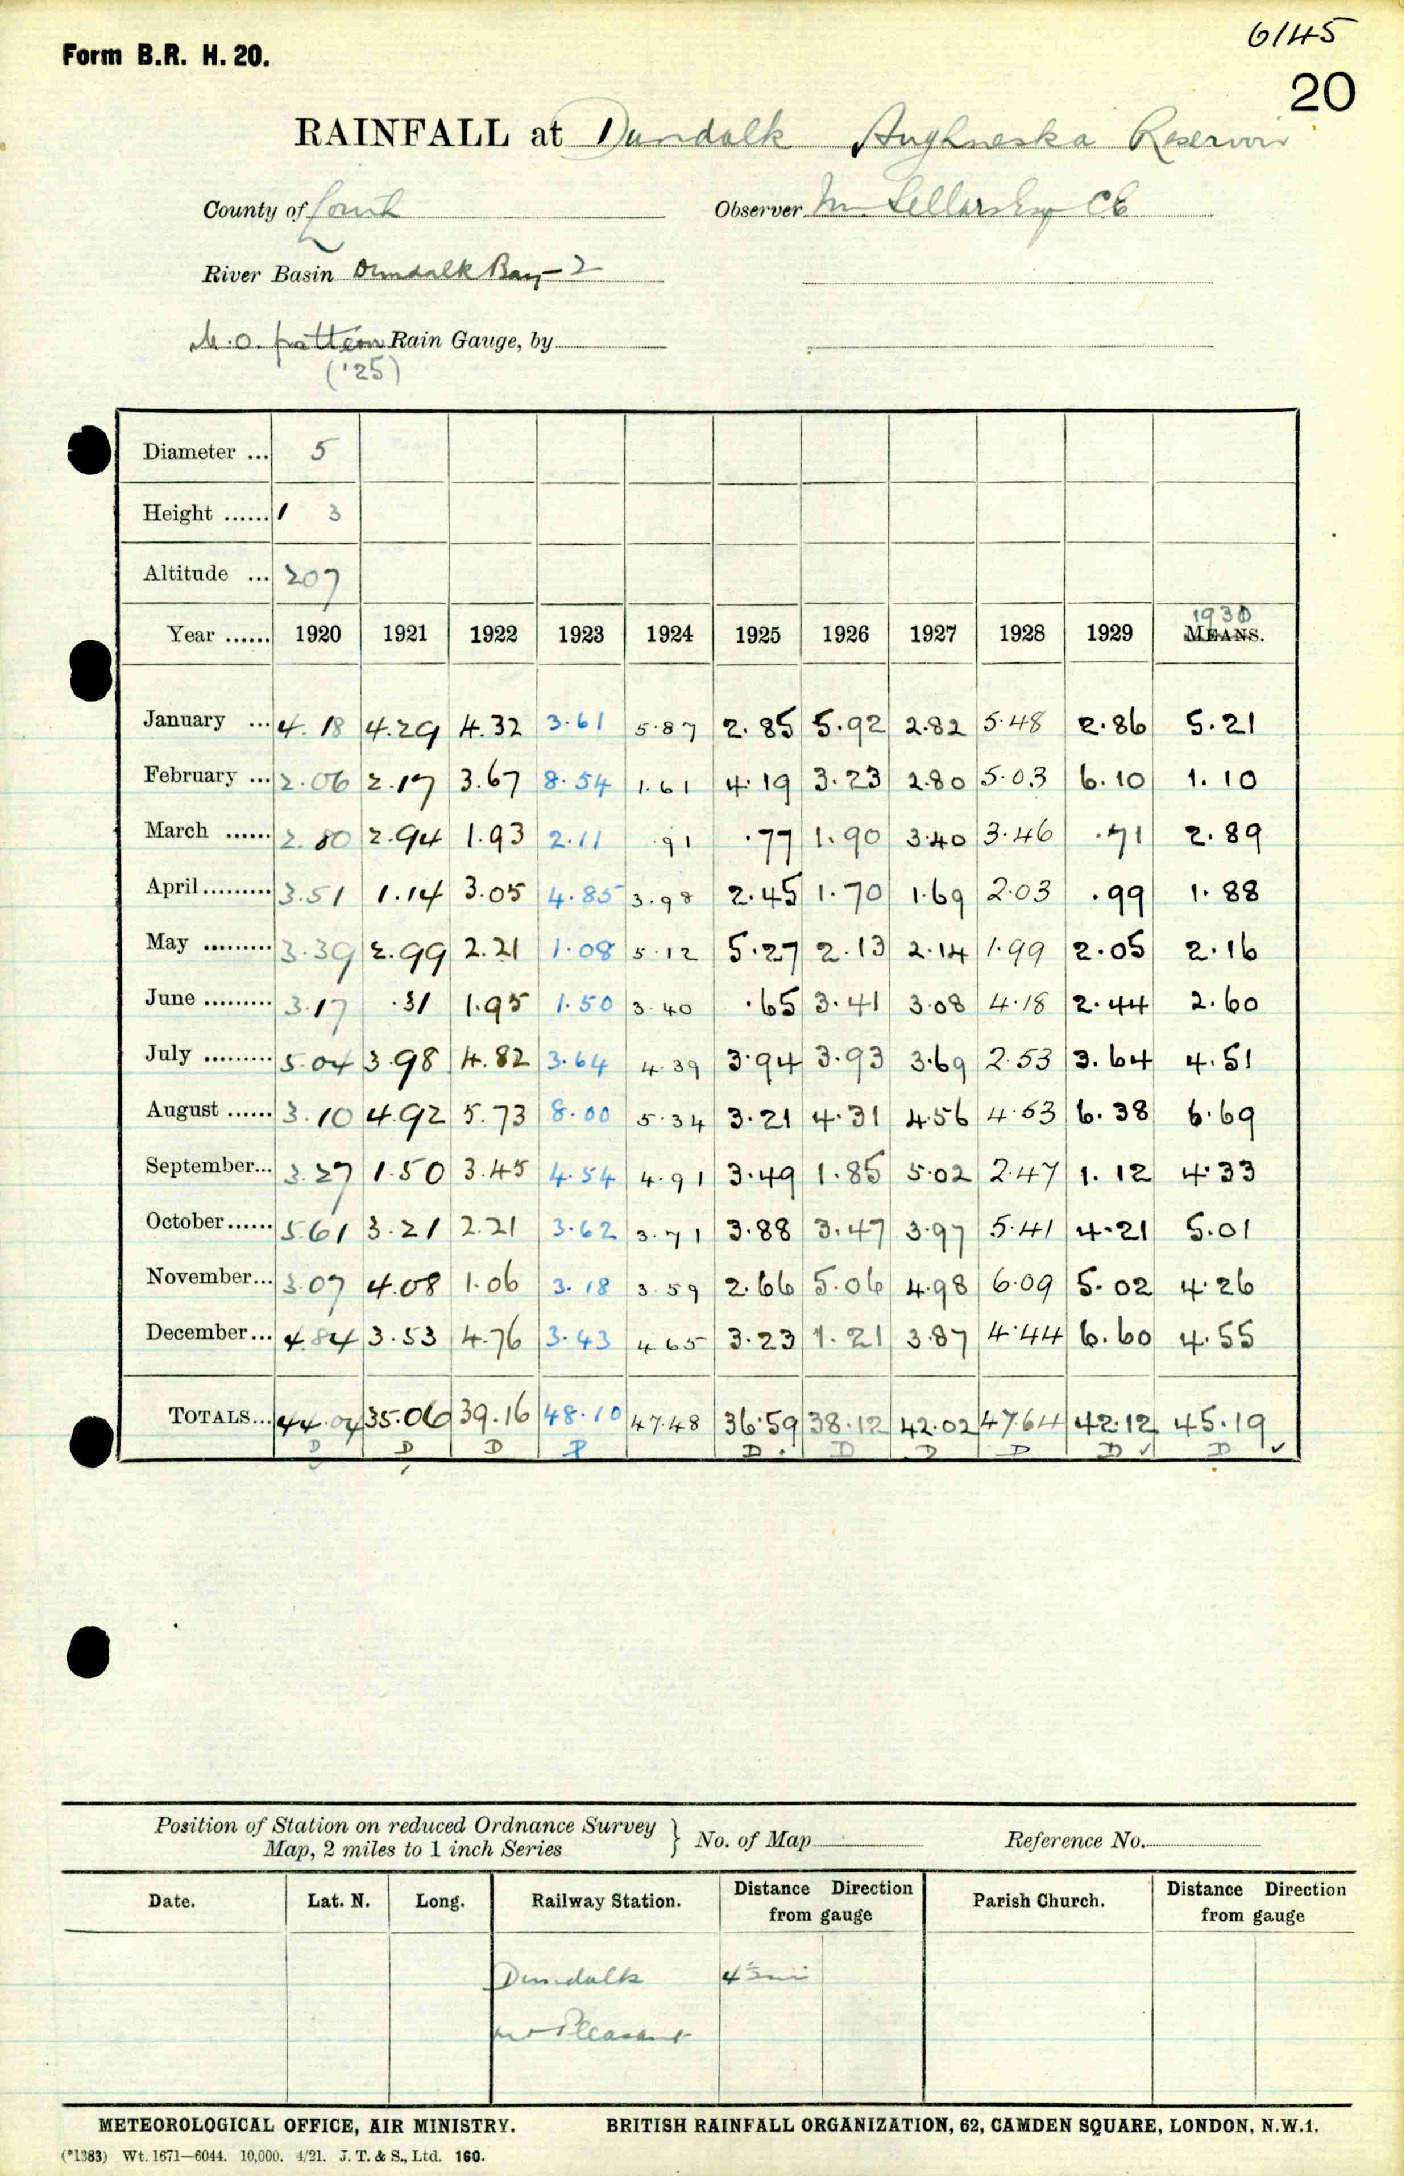 6145
Form B.R. H. 20.
20
RAINFALL at Dundalk Aughneska Reservoir
County of Louth Observer
River Basin Dundalk Bay - 2
M.O. pattern Rain Gauge, by
('25)
Diameter ... 5
Height ...... 1 3
Altitude ... 207
1930
Year ...... 1920 1921 1922 1923 1924 1925 1926 1927 1928 1929 MEANS.
January ... 4.18 4.29 4.32 3.61 5.87 2.85 5.92 2.82 5.48 2.86 5.21
February ... 2.06 2.17 3.67 8.54 1.61 4.19 3.23 2.80 5.03 6.10 1.10
March ...... 2.80 2.94 1.93 2.11 .91 .77 1.90 3.40 3.46 .71 2.89
April ......... 3.51 1.14 3.05 4.85 3.98 2.45 1.70 1.69 2.03 .99 1.88
May ......... 3.39 2.99 2.21 1.08 5.12 5.27 2.13 2.14 1.99 2.05 2.16
June ......... 3.17 .31 1.95 1.50 3.40 .65 3.41 3.08 4.18 2.44 2.60
July ......... 5.04 3.98 4.82 3.64 4.39 3.94 3.93 3.69 2.53 3.64 4.51
August ...... 3.10 4.92 5.73 8.00 5.34 3.21 4.31 4.56 4.53 6.38 6.69
September... 3.27 1.50 3.45 4.54 4.91 3.49 1.85 5.02 2.47 1.12 4.33
October...... 5.61 3.21 2.21 3.62 3.71 3.88 3.47 3.97 5.41 4.21 5.01
November... 3.07 4.08 1.06 3.18 3.59 2.66 5.06 4.98 6.09 5.02 4.26
December... 4.84 3.53 4.76 3.43 4.65 3.23 1.21 3.87 4.44 6.60 4.55
TOTALS... 44.04 35.06 39.16 48.10 47.48 36.59 38.12 42.02 47.64 42.12 45.19
D D D D D D D D D D
Position of Station on reduced Ordnance Survey
Map, 2 miles to 1 inch Series } No. of Map Reference No.
Date. Lat. N. Long. Railway Station. Distance Direction from gauge Parish Church. Distance Direction from gauge
Dundalk
Mt Pleasant
METEOROLOGICAL OFFICE, AIR MINISTRY. BRITISH RAINFALL ORGANIZATION, 62, CAMDEN SQUARE, LONDON, N.W.1.
(*1383) Wt. 1671—6044. 10,000. 4/21. J. T. & S., Ltd. 160.